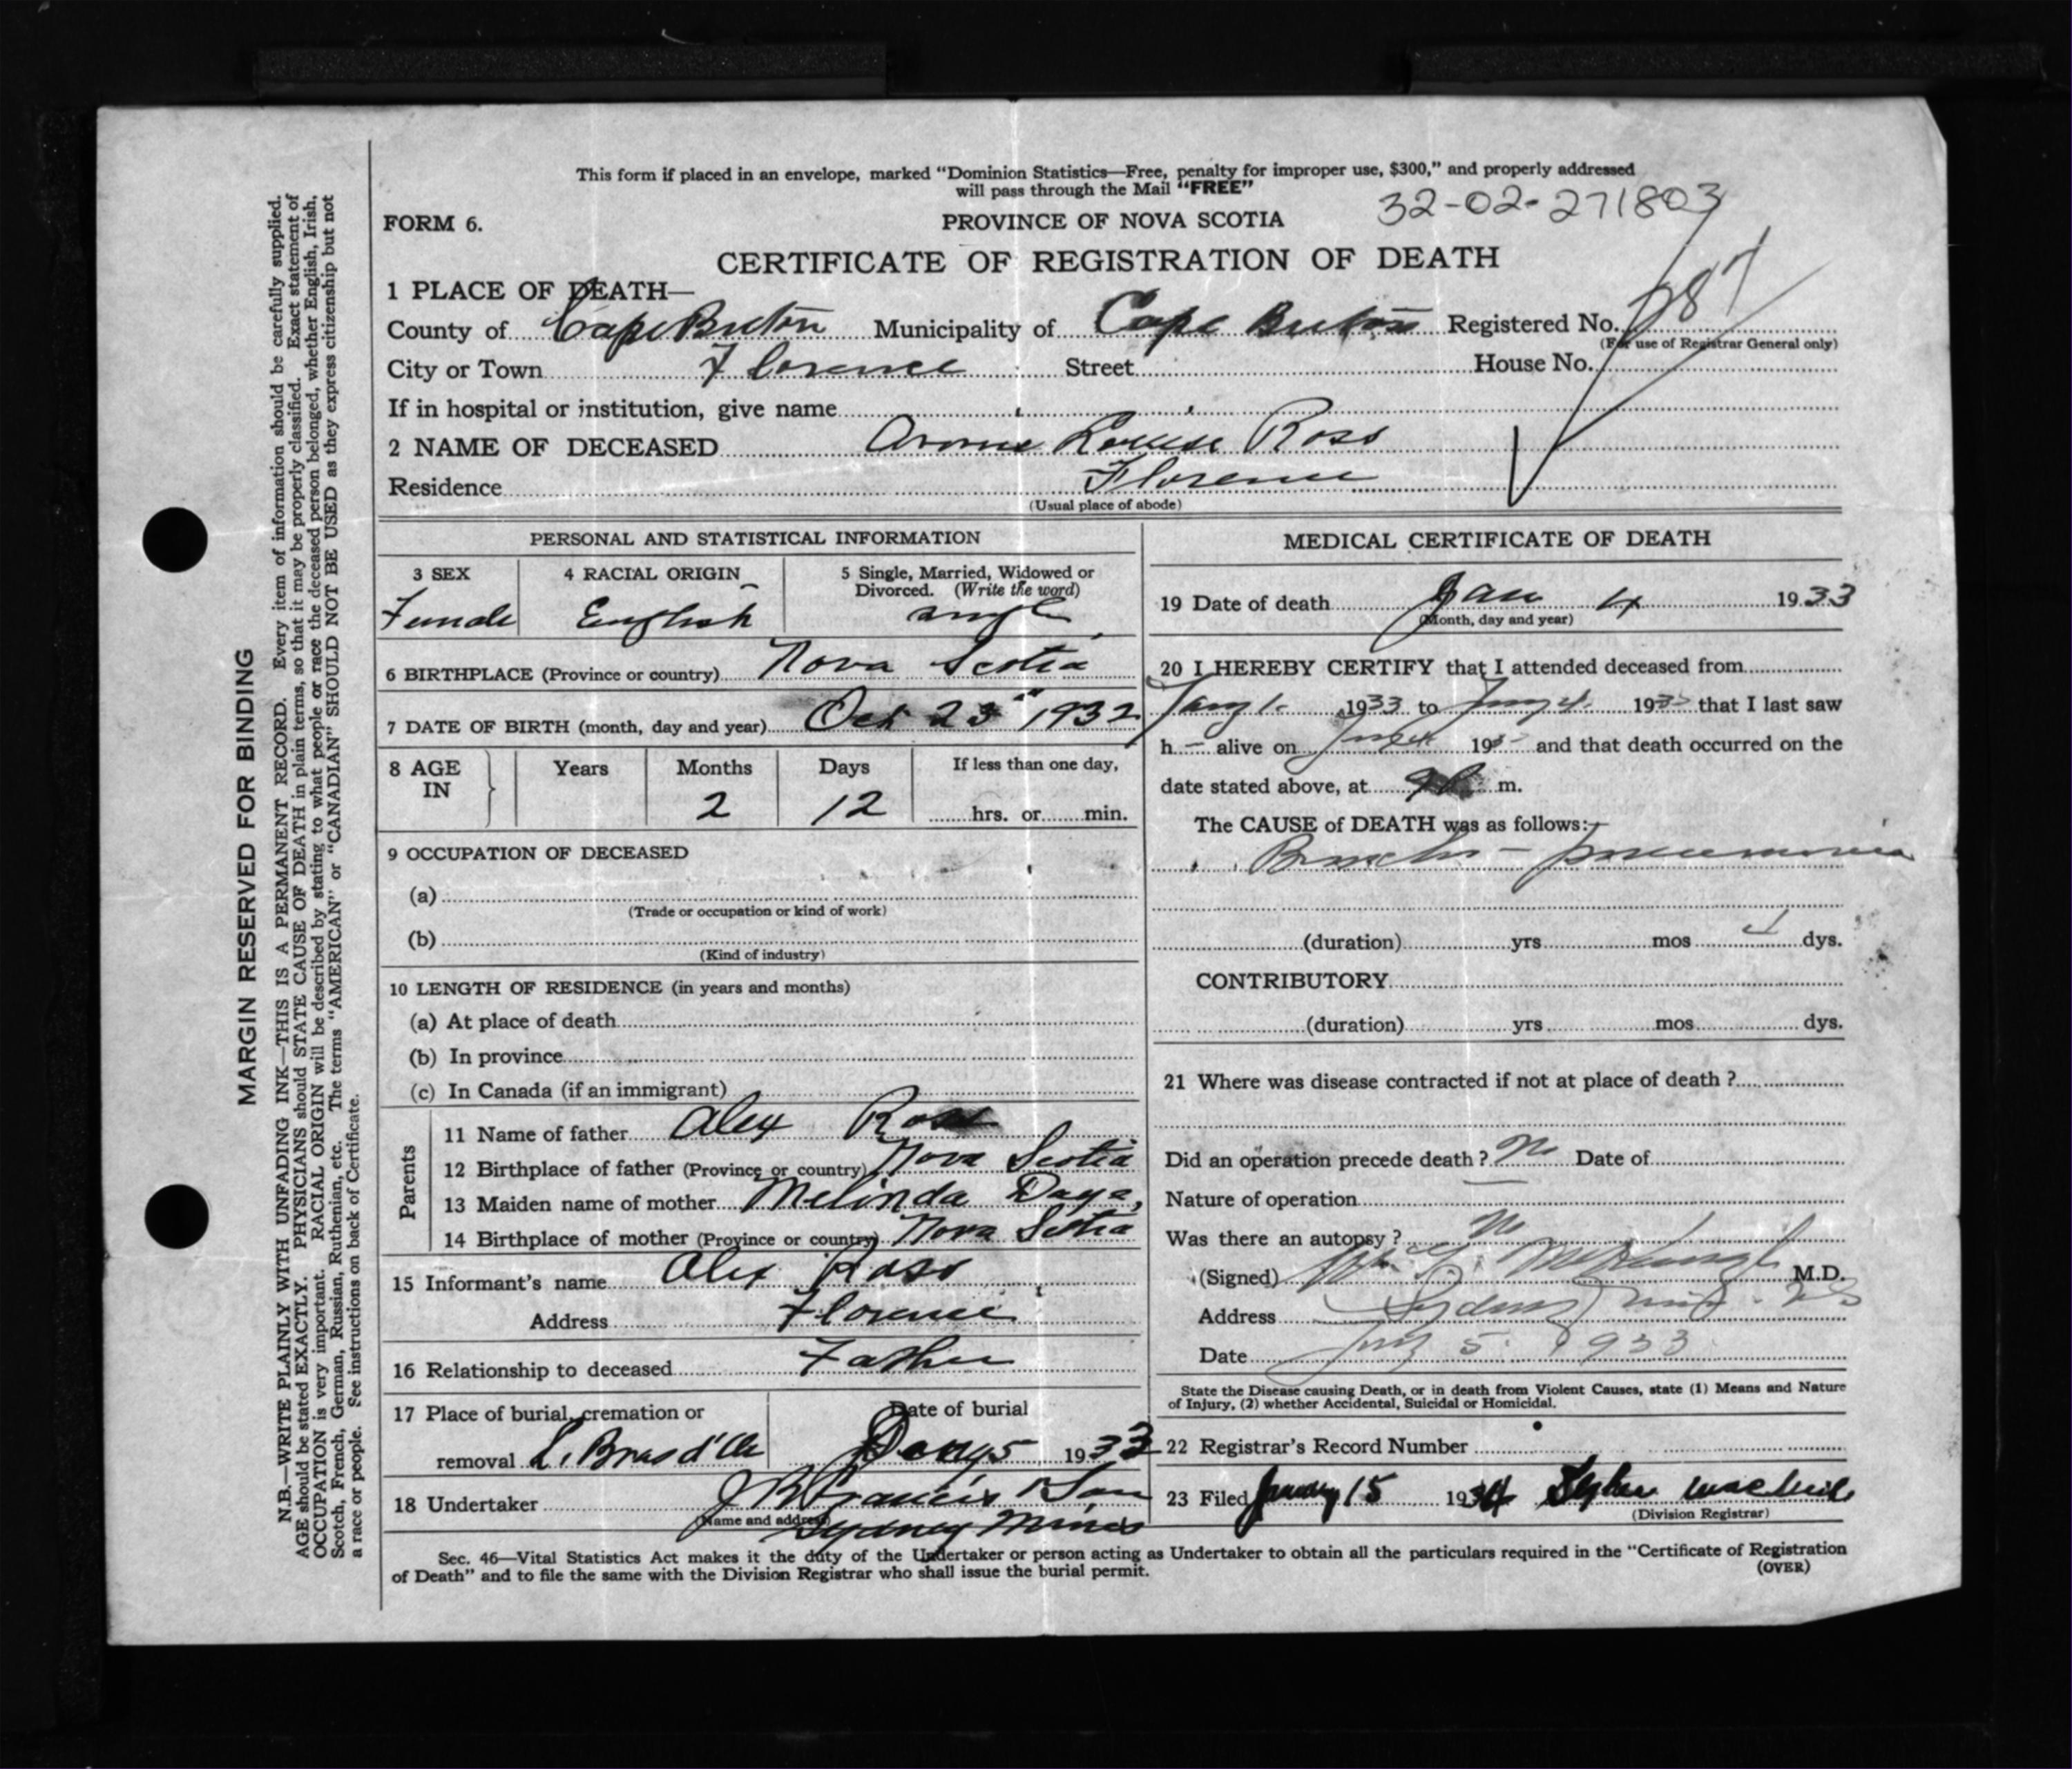 This form if placed in an envelope, marked "Dominion Statistics—Free, penalty for improper use, $300," and properly addressed
will pass through the Mail "FREE"
32-02-271803
FORM 6.
PROVINCE OF NOVA SCOTIA
CERTIFICATE OF REGISTRATION OF DEATH
1 PLACE OF DEATH—
County of Cape Breton Municipality of Cape Breton Registered No. 787
(For use of Registrar General only)
City or Town Florence Street House No.
If in hospital or institution, give name
2 NAME OF DECEASED Louise Ross
Residence Florence
(Usual place of abode)
PERSONAL AND STATISTICAL INFORMATION
3 SEX 4 RACIAL ORIGIN 5 Single, Married, Widowed or
Divorced. (Write the word)
Female English single
6 BIRTHPLACE (Province or country) Nova Scotia
7 DATE OF BIRTH (month, day and year) Oct 23 1932
8 AGE IN Years Months Days If less than one day,
2 12 hrs. or min.
9 OCCUPATION OF DECEASED
(a)
(Trade or occupation or kind of work)
(b)
(Kind of industry)
10 LENGTH OF RESIDENCE (in years and months)
(a) At place of death
(b) In province
(c) In Canada (if an immigrant)
Parents
11 Name of father Alex Ross
12 Birthplace of father (Province or country) Nova Scotia
13 Maiden name of mother Melinda Daye
14 Birthplace of mother (Province or country) Nova Scotia
15 Informant's name Alex Ross
Address Florence
16 Relationship to deceased Father
17 Place of burial, cremation or Date of burial
removal L. Bras d'Or Jany 5 1933
18 Undertaker J R Francis & Son
(Name and address) Sydney Mines
MEDICAL CERTIFICATE OF DEATH
19 Date of death Jan 4 1933
(Month, day and year)
20 I HEREBY CERTIFY that I attended deceased from
Jany 1. 1933 to Jany 4. 1933 that I last saw
h — alive on Jany 4 193 and that death occurred on the
date stated above, at 9 m.
The CAUSE of DEATH was as follows:—
Broncho - pneumonia
(duration) yrs mos 4 dys.
CONTRIBUTORY
(duration) yrs mos dys.
21 Where was disease contracted if not at place of death ?
Did an operation precede death ? No Date of
Nature of operation
Was there an autopsy ? No
(Signed) M.D.
Address Sydney Mines. N.S
Date Jany 5. 1933
State the Disease causing Death, or in death from Violent Causes, state (1) Means and Nature
of Injury, (2) whether Accidental, Suicidal or Homicidal.
22 Registrar's Record Number
23 Filed January 15 1934 Stephen MacNeil
(Division Registrar)
Sec. 46—Vital Statistics Act makes it the duty of the Undertaker or person acting as Undertaker to obtain all the particulars required in the "Certificate of Registration
of Death" and to file the same with the Division Registrar who shall issue the burial permit.
(OVER)
MARGIN RESERVED FOR BINDING
N.B.—WRITE PLAINLY WITH UNFADING INK—THIS IS A PERMANENT RECORD. Every item of information should be carefully supplied.
AGE should be stated EXACTLY. PHYSICIANS should STATE CAUSE OF DEATH in plain terms, so that it may be properly classified. Exact statement of
OCCUPATION is very important. RACIAL ORIGIN will be described by stating to what people or race the deceased person belonged, whether English, Irish,
Scotch, French, German, Russian, Ruthenian, etc. The terms "AMERICAN" or "CANADIAN" SHOULD NOT BE USED as they express citizenship but not
a race or people. See instructions on back of Certificate.